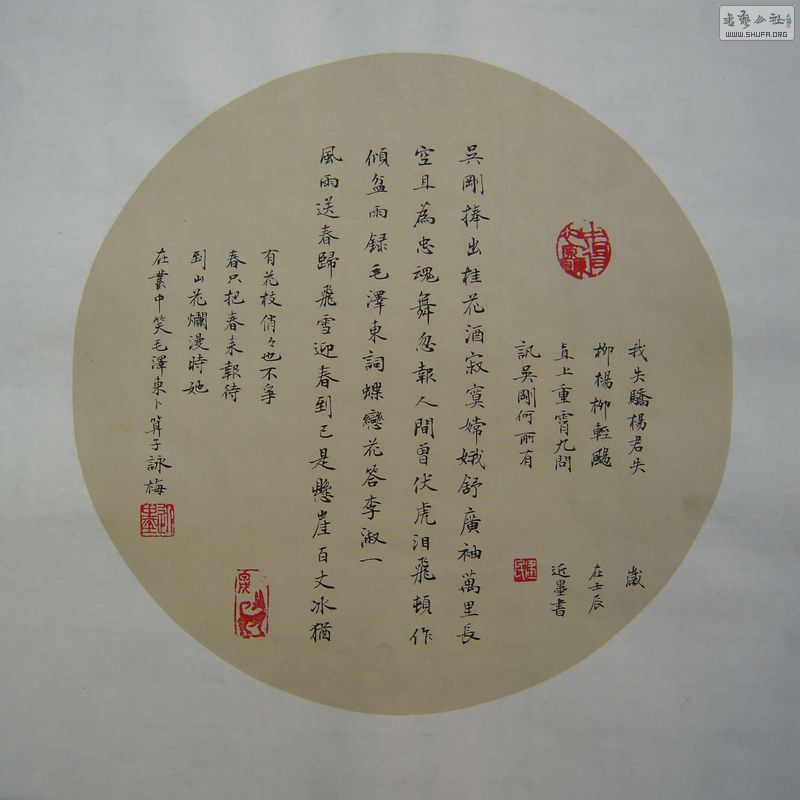 我失驕楊君失
柳楊柳輕颺
直上重霄九問
訊吳剛何所有
吳剛捧出桂花酒寂寞嫦娥舒廣袖萬里長
空且為忠魂舞忽報人間曾伏虎淚飛頓作
傾盆雨錄毛澤東詞蝶戀花答李淑一
風雨送春歸飛雪迎春到已是懸崖百丈冰猶
有花枝俏々也不爭
春只把春來報待
到山花爛漫時她
在叢中笑毛澤東卜算子詠梅
歲
在壬辰
近墨書
書藝公社
WWW.SHUFA.ORG